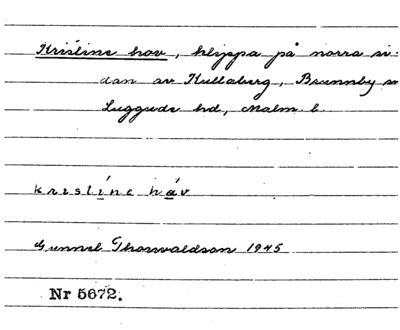 Kristine hov, klippa på norra si-
dan av Kullaberg, Brunnby sn
Luggude hd, Malm. l.
kristíne háv
Gunnel Thorvaldson 1945
Nr 5672.